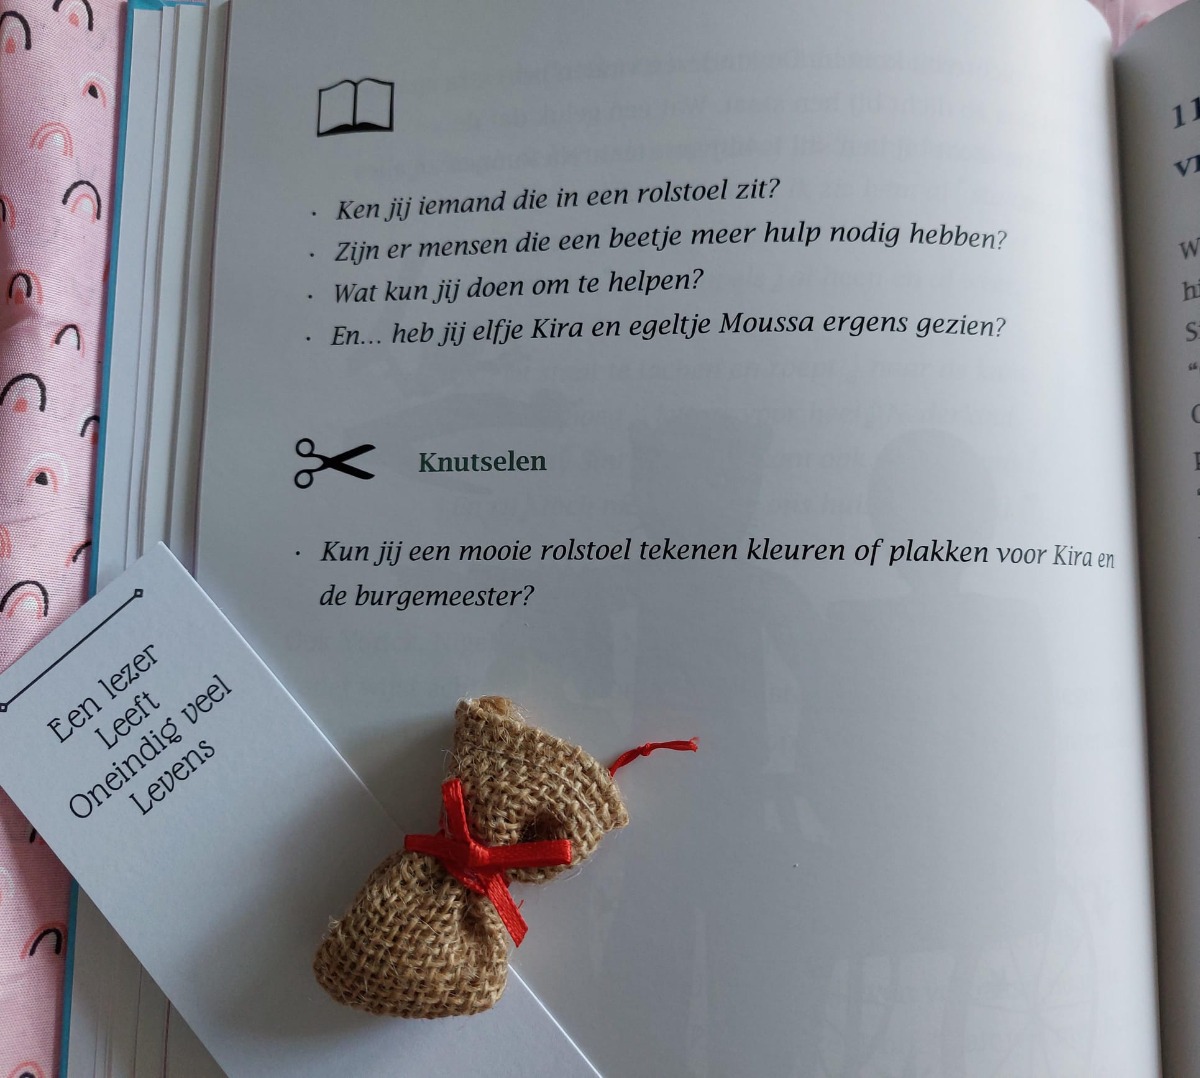 · Ken jij iemand die in een rolstoel zit?
· Zijn er mensen die een beetje meer hulp nodig hebben?
· Wat kun jij doen om te helpen?
· En... heb jij elfje Kira en egeltje Moussa ergens gezien?
Knutselen
· Kun jij een mooie rolstoel tekenen kleuren of plakken voor Kira en
de burgemeester?
Een lezer
Leeft
Oneindig veel
Levens